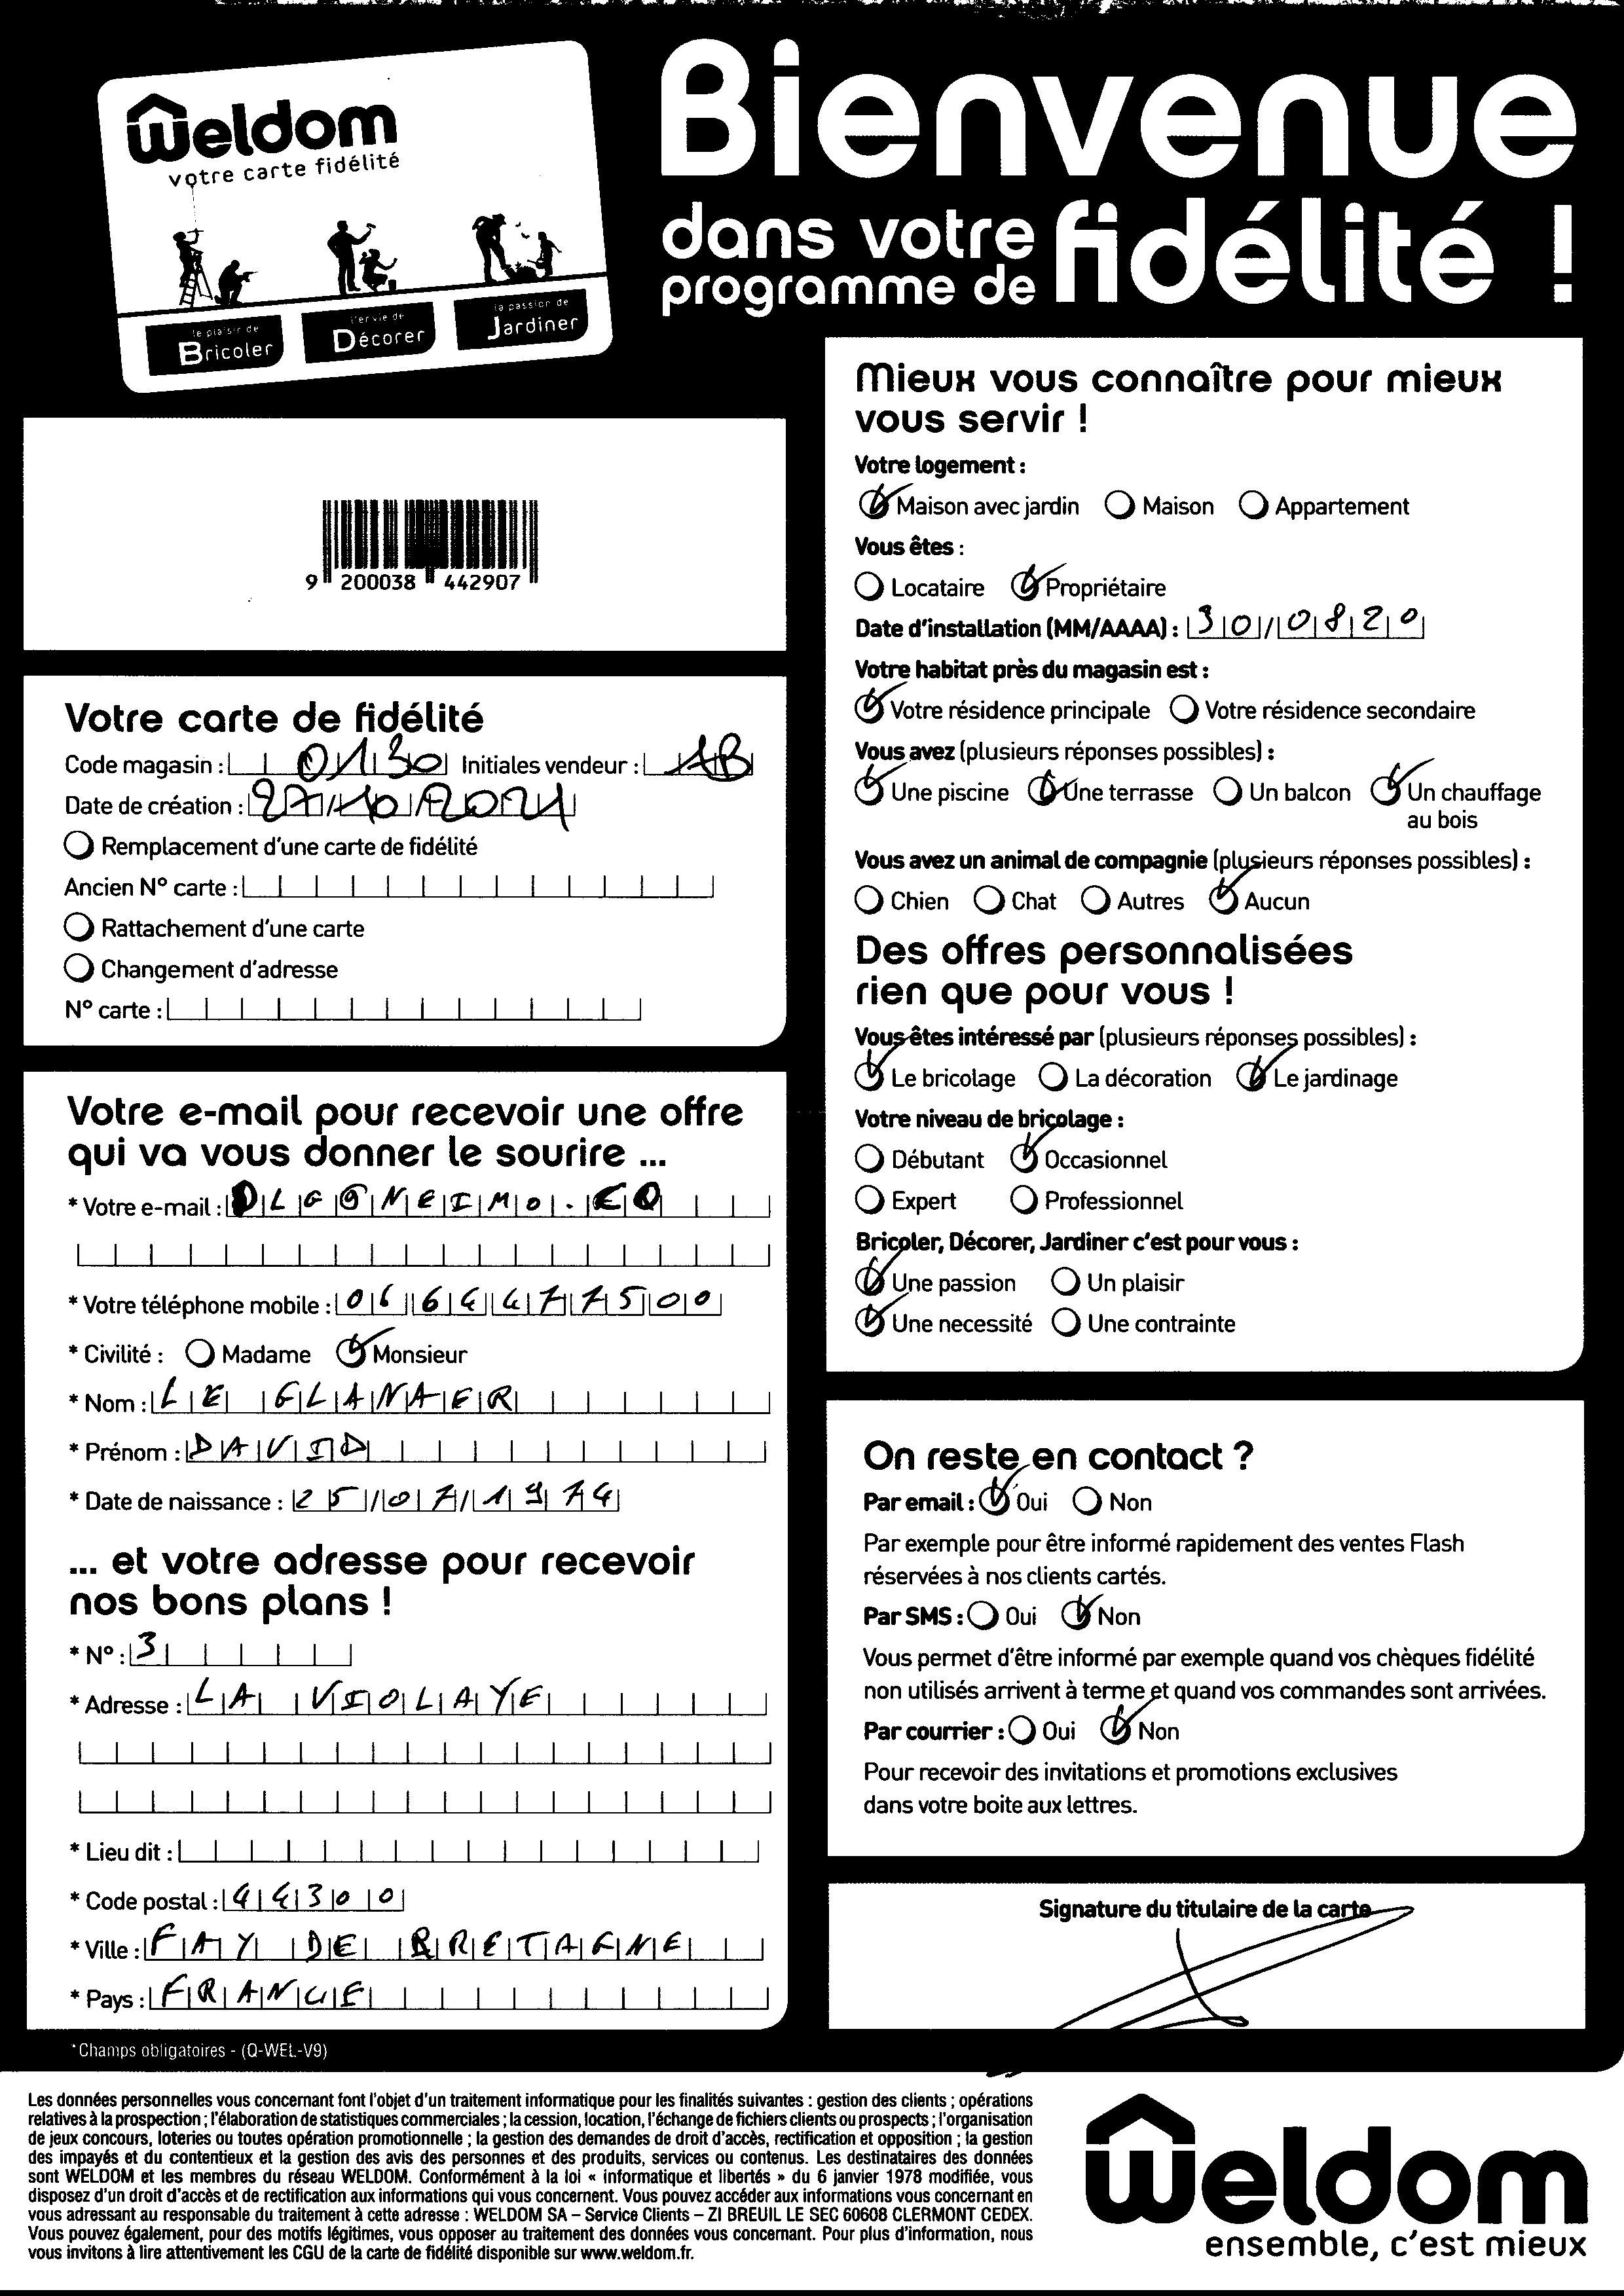 Weldom
votre carte fidélité
le plaisir de
Bricoler
l'envie de
Décorer
la passion de
Jardiner
Bienvenue
dans votre
programme de
fidélité !
9 200038 442907
Votre carte de fidélité
Code magasin : 0130 Initiales vendeur : AB
Date de création : 27/10/2021
Remplacement d'une carte de fidélité
Ancien N° carte :
Rattachement d'une carte
Changement d'adresse
N° carte :
Votre e-mail pour recevoir une offre
qui va vous donner le sourire ...
* Votre e-mail : DLG@NEIMO.EO
* Votre téléphone mobile : 0664477500
* Civilité : Madame Monsieur
* Nom : LE GLANAER
* Prénom : DAVID
* Date de naissance : 25/07/1974
... et votre adresse pour recevoir
nos bons plans !
* N° : 3
* Adresse : LA VIOLAYE
* Lieu dit :
* Code postal : 44300
* Ville : FAY DE BRETAGNE
* Pays : FRANCE
* Champs obligatoires - (Q-WEL-V9)
Mieux vous connaître pour mieux
vous servir !
Votre logement :
Maison avec jardin Maison Appartement
Vous êtes :
Locataire Propriétaire
Date d'installation (MM/AAAA) : 30/0820
Votre habitat près du magasin est :
Votre résidence principale Votre résidence secondaire
Vous avez (plusieurs réponses possibles) :
Une piscine Une terrasse Un balcon Un chauffage
au bois
Vous avez un animal de compagnie (plusieurs réponses possibles) :
Chien Chat Autres Aucun
Des offres personnalisées
rien que pour vous !
Vous êtes intéressé par (plusieurs réponses possibles) :
Le bricolage La décoration Le jardinage
Votre niveau de bricolage :
Débutant Occasionnel
Expert Professionnel
Bricoler, Décorer, Jardiner c'est pour vous :
Une passion Un plaisir
Une necessité Une contrainte
On reste en contact ?
Par email : Oui Non
Par exemple pour être informé rapidement des ventes Flash
réservées à nos clients cartés.
Par SMS : Oui Non
Vous permet d'être informé par exemple quand vos chèques fidélité
non utilisés arrivent à terme et quand vos commandes sont arrivées.
Par courrier : Oui Non
Pour recevoir des invitations et promotions exclusives
dans votre boite aux lettres.
Signature du titulaire de la carte
Les données personnelles vous concernant font l'objet d'un traitement informatique pour les finalités suivantes : gestion des clients ; opérations
relatives à la prospection ; l'élaboration de statistiques commerciales ; la cession, location, l'échange de fichiers clients ou prospects ; l'organisation
de jeux concours, loteries ou toutes opération promotionnelle ; la gestion des demandes de droit d'accès, rectification et opposition ; la gestion
des impayés et du contentieux et la gestion des avis des personnes et des produits, services ou contenus. Les destinataires des données
sont WELDOM et les membres du réseau WELDOM. Conformément à la loi « informatique et libertés » du 6 janvier 1978 modifiée, vous
disposez d'un droit d'accès et de rectification aux informations qui vous concernent. Vous pouvez accéder aux informations vous concernant en
vous adressant au responsable du traitement à cette adresse : WELDOM SA – Service Clients – ZI BREUIL LE SEC 60608 CLERMONT CEDEX.
Vous pouvez également, pour des motifs légitimes, vous opposer au traitement des données vous concernant. Pour plus d'information, nous
vous invitons à lire attentivement les CGU de la carte de fidélité disponible sur www.weldom.fr.
Weldom
ensemble, c'est mieux